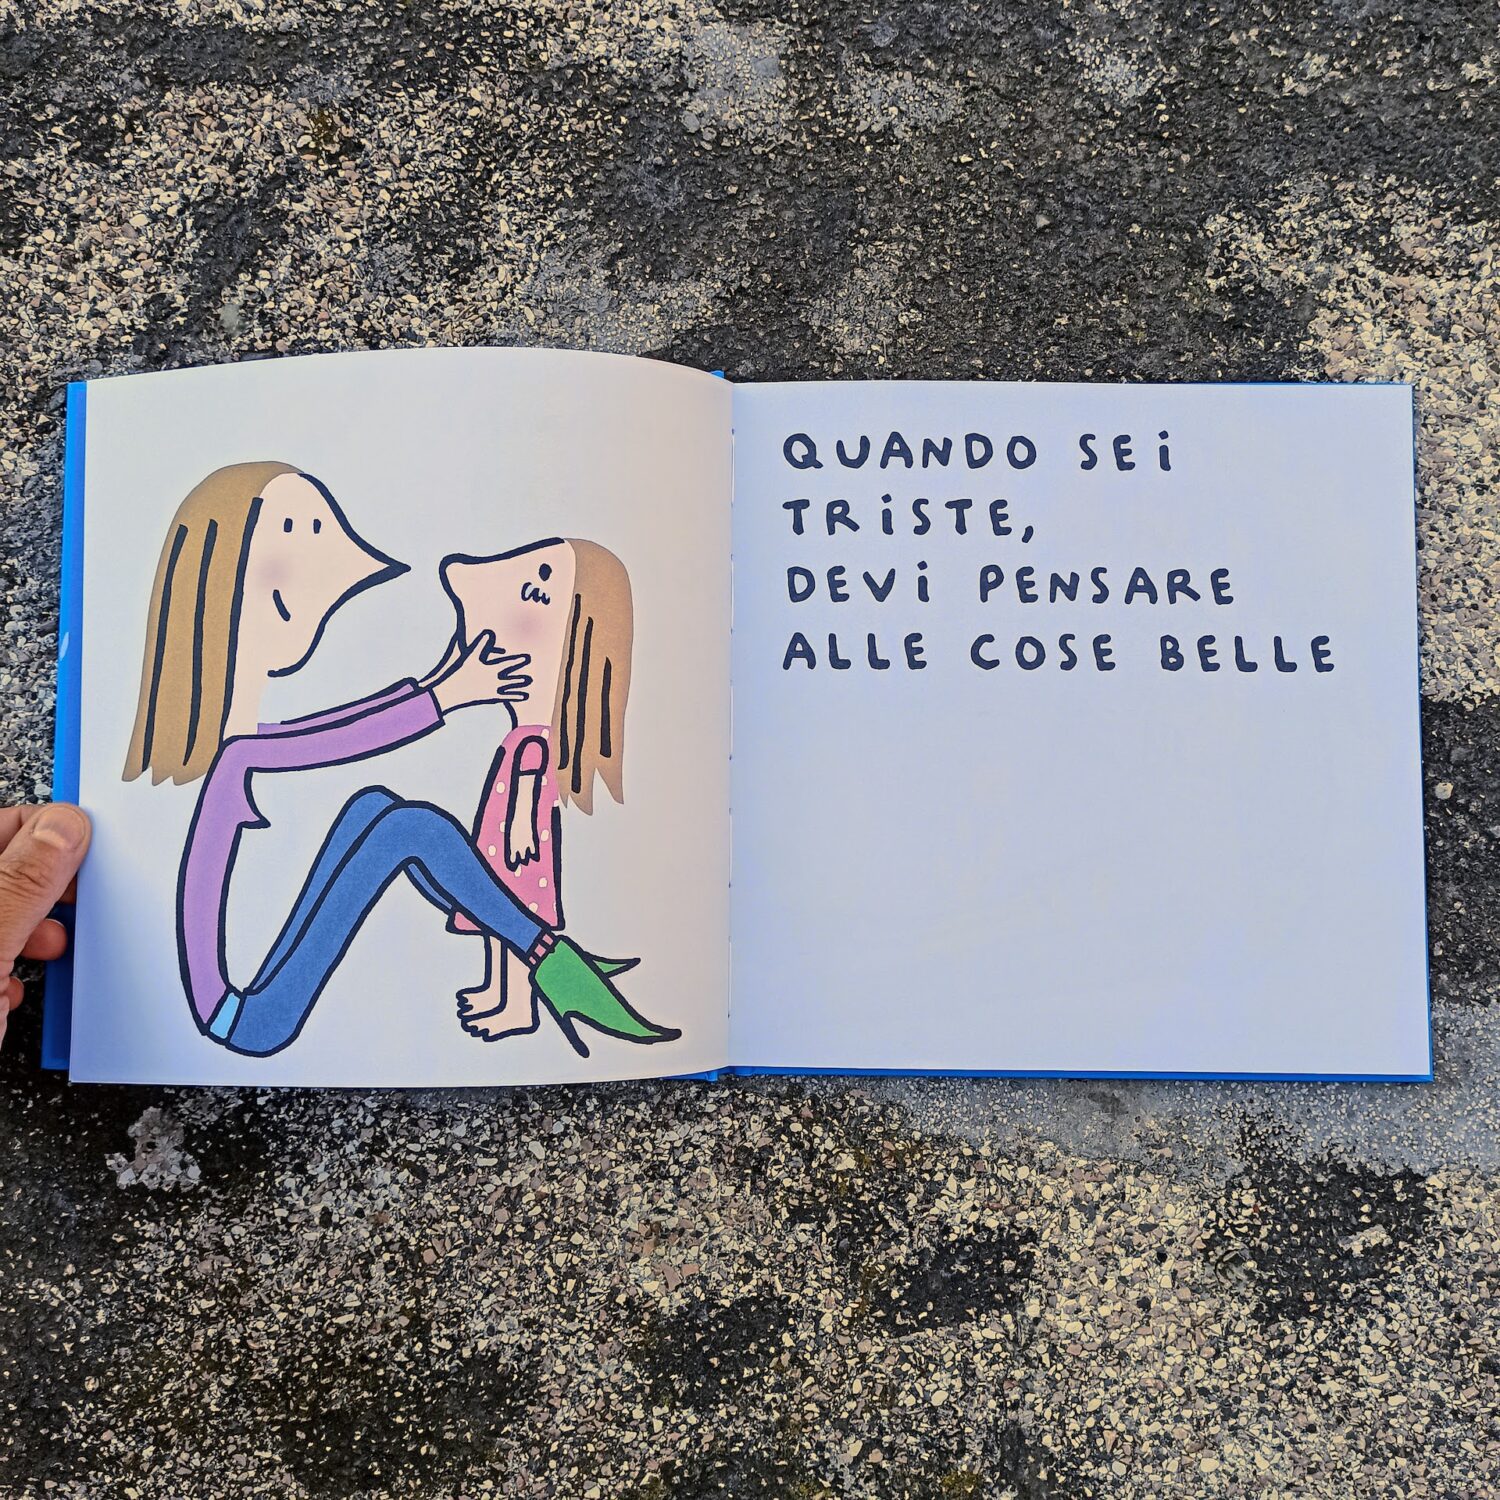 QUANDO SEi
TRiSTE,
DEVi PENSARE
ALLE COSE BELLE